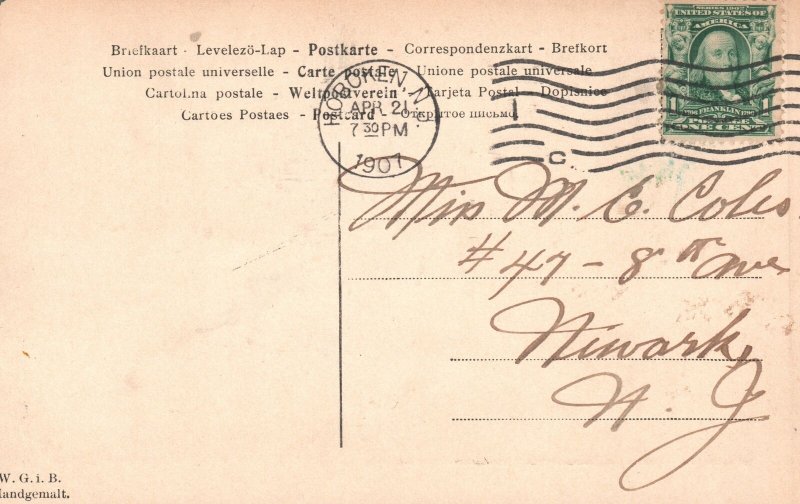 Briefkaart - Levelezö-Lap - Postkarte - Correspondenzkart - Brefkort
Union postale universelle - Carte postale - Unione postale universale
Cartolina postale - Weltpostverein - Tarjeta Postal - Dopisnice
Cartoes Postaes - Postcard - Открытое письмо.
HOBOKEN, N.J.
APR 21
7 30 PM
1907
1
C.
SERIES 1902
UNITED STATES OF
AMERICA
1 FRANKLIN 1
1706 1790
POSTAGE
ONE CENT
Miss M. E. Coles.
#47 - 8th Ave
Newark,
N. J
W. G. i. B.
Handgemalt.